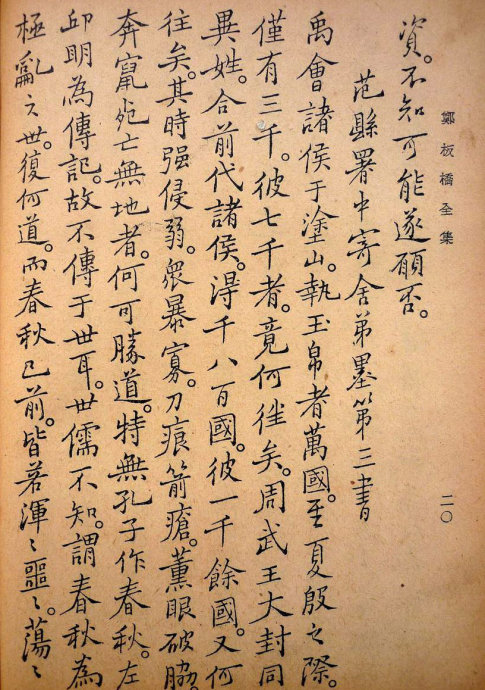 鄭板橋全集
二〇
資。不知可能遂願否。
范縣署中寄舍弟墨第三書
禹會諸侯于塗山。執玉帛者萬國。至夏殷之際。
僅有三千。彼七千者。竟何往矣。周武王大封同
異姓。合前代諸侯。得千八百國。彼一千餘國。又何
往矣。其時强侵弱。衆暴寡。刀痕箭瘡。薰眼破脇。
奔竄死亡無地者。何可勝道。特無孔子作春秋。左
邱明為傳記。故不傳于世耳。世儒不知。謂春秋為
極亂之世。復何道。而春秋已前。皆若渾〻噩〻。蕩〻